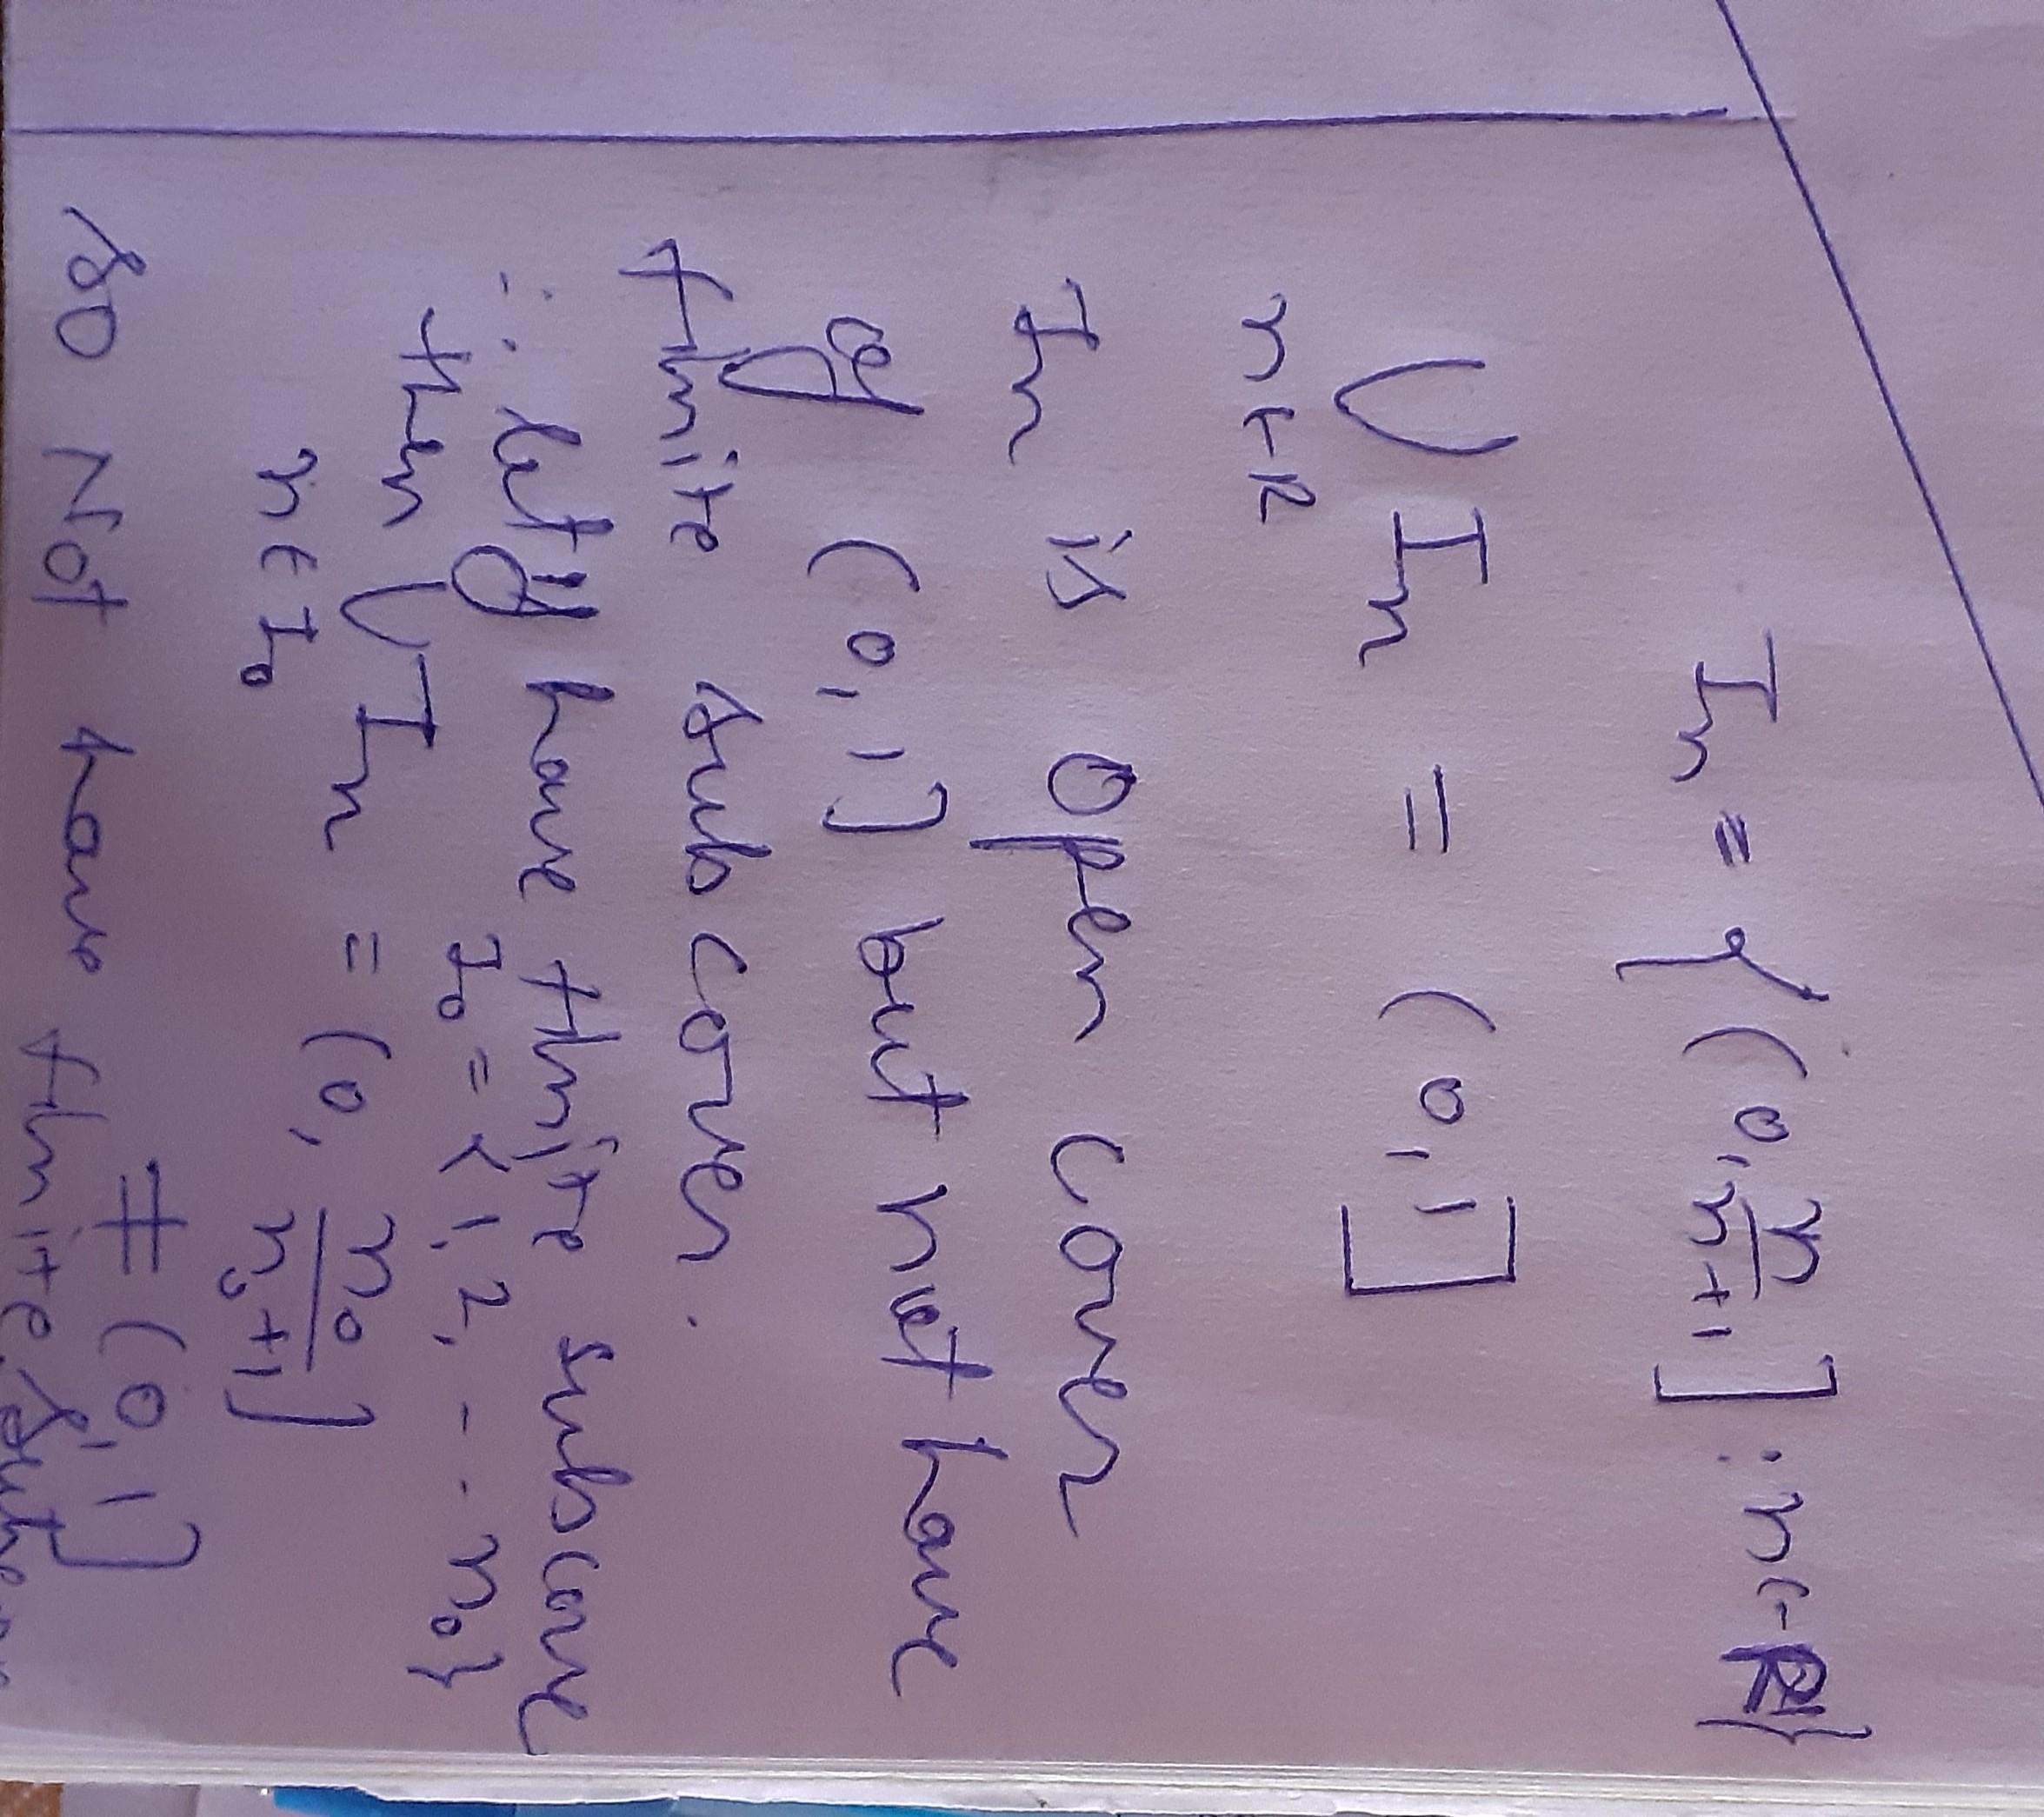 In = {(0, n/n+1] : n ∈ R}
⋃ In = (0, 1]
n∈R
In is open cover
of (0, 1] but not have
finite sub cover.
∵ let y have finite subcove
I0 = {1, 2, - - . n0}
then ⋃ In = (0, n0/n0+1]
n ∈ I0
≠ (0, 1]
so Not have finite